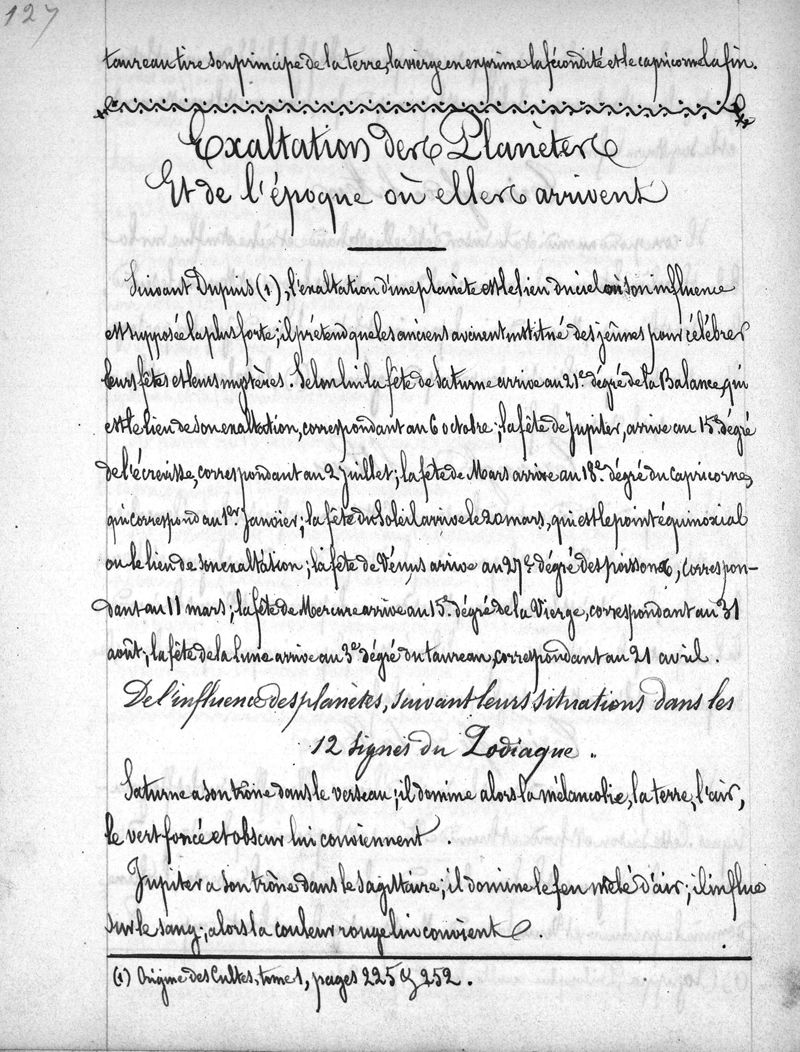 127
taureau tire son principe de la terre, la vierge en exprime la fécondité et le capricorne la fin.
Exaltations des Planètes
Et de l'époque où elles arrivent
Suivant Dupuis (1), l'exaltation d'une planète est le lieu du ciel où son influence
est supposée la plus forte; il prétend que les anciens avaient institué des jeûnes pour célébrer
leurs fêtes et leurs mystères. Selon lui la fête de Saturne arrive au 21e. dégré de la Balance, qui
est le lieu de son exaltation, correspondant au 6 octobre; la fête de Jupiter, arrive au 15e. dégré
de l'écrevisse, correspondant au 2 juillet; la fête de Mars arrive au 18e. dégré du capricorne,
qui correspond au 1er. Janvier; la fête du Soleil arrive le 20 mars, qui est le point équinoxial
ou le lieu de son exaltation; la fête de Vénus arrive au 27e. dégré des poissons, correspon-
dant au 11 mars; la fête de Mercure arrive au 15e. dégré de la Vierge, correspondant au 31
août; la fête de la lune arrive au 3e. dégré du taureau, correspondant au 21 avril.
De l'influence des planètes, suivant leurs situations dans les
12 signes du Zodiaque.
Saturne a son trône dans le verseau; il domine alors la mélancolie, la terre, l'air,
le vert foncé et obscur lui conviennent.
Jupiter a son trône dans le sagittaire; il domine le feu mêlé d'air; il influe
sur le sang; alors la couleur rouge lui convient.
(1) Origine des Cultes, tome 1, pages 225 & 252.